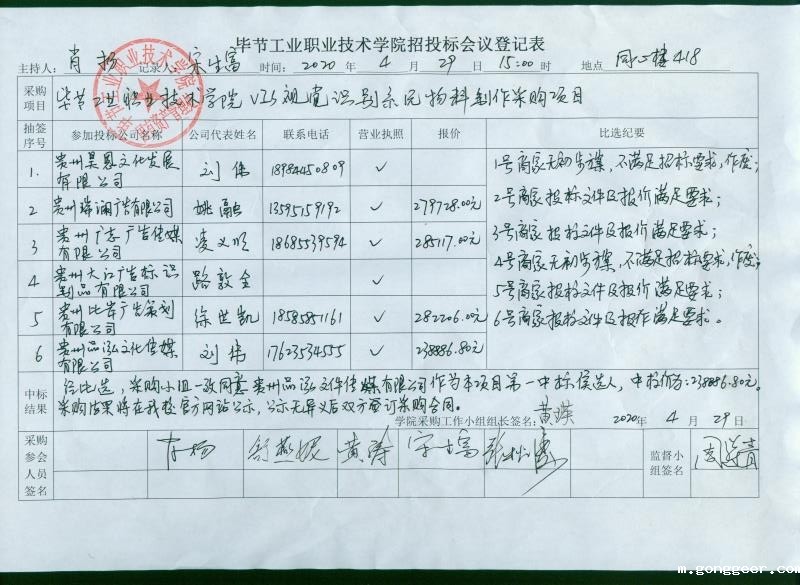 毕节工业职业技术学院招投标会议登记表
主持人: 肖扬 记录人: 宋生富 时间: 2020 年 4 月 29 日 15:00 时 地点 同心楼418
采购项目 毕节工业职业技术学院VIS视觉识别系统物料制作采购项目
抽签序号 参加投标公司名称 公司代表姓名 联系电话 营业执照 报价 比选纪要
1. 贵州昊恩文化发展有限公司 刘伟 18984450809 ✓
2 贵州瑞澜广告有限公司 姚融 13595159192 ✓ 279728.00元
3 贵州广志广告传媒有限公司 凌义顺 18685539594 ✓ 285117.00元
4 贵州大江广告标识制品有限公司 路敦全 ✓
5 贵州比岸广告策划有限公司 徐世凯 18585851161 ✓ 282206.00元
6 贵州品泓文化传媒有限公司 刘伟 17623534555 ✓ 238886.80元
1号商家无初步媒,不满足招标要求,作废;
2号商家投标文件及报价满足要求;
3号商家投标文件及报价满足要求;
4号商家无初步媒,不满足招标要求,作废;
5号商家投标文件及报价满足要求;
6号商家投标文件及报价满足要求。
中标结果 经比选,采购小组一致同意贵州品泓文件传媒有限公司作为本项目第一中标候选人,中标价为:238886.80元。
采购结果将在我校官方网站公示,公示无异议后双方签订采购合同。
学院采购工作小组组长签名: 黄瑛 2020年 4 月 29 日
采购参会人员签名 肖扬 黄涛 宋生富 监督小组签名
m.gonggeer.com